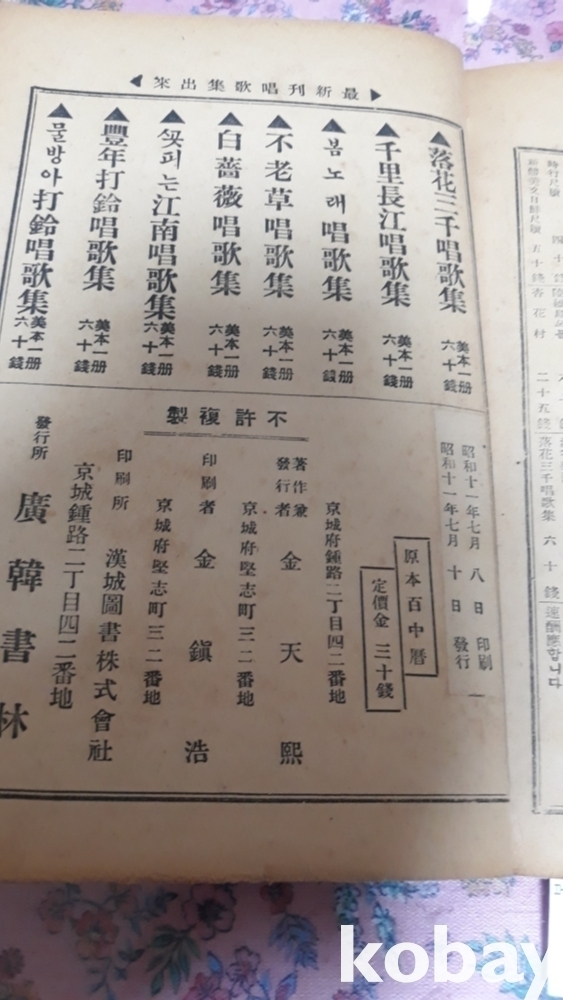 ▶最新刊唱歌集出來◀
▲落花三千唱歌集 美本一册 六十錢
▲千里長江唱歌集 美本一册 六十錢
▲봄노래唱歌集 美本一册 六十錢
▲不老草唱歌集 美本一册 六十錢
▲白薔薇唱歌集 美本一册 六十錢
▲꽃피는江南唱歌集 美本一册 六十錢
▲豐年打鈴唱歌集 美本一册 六十錢
▲물방아打鈴唱歌集 美本一册 六十錢
昭和十一年七月 八日 印刷
昭和十一年七月 十日 發行
原本百中曆
定價金 三十錢
不許複製
京城府鍾路二丁目四二番地
著作兼發行者 金天熙
京城府堅志町三二番地
印刷者 金鎭浩
京城府堅志町三二番地
印刷所 漢城圖書株式會社
京城鍾路二丁目四二番地
發行所 廣韓書林
五十錢
杏花村
二十五錢
落花三千唱歌集 六十錢
速酬應합니다
kobay